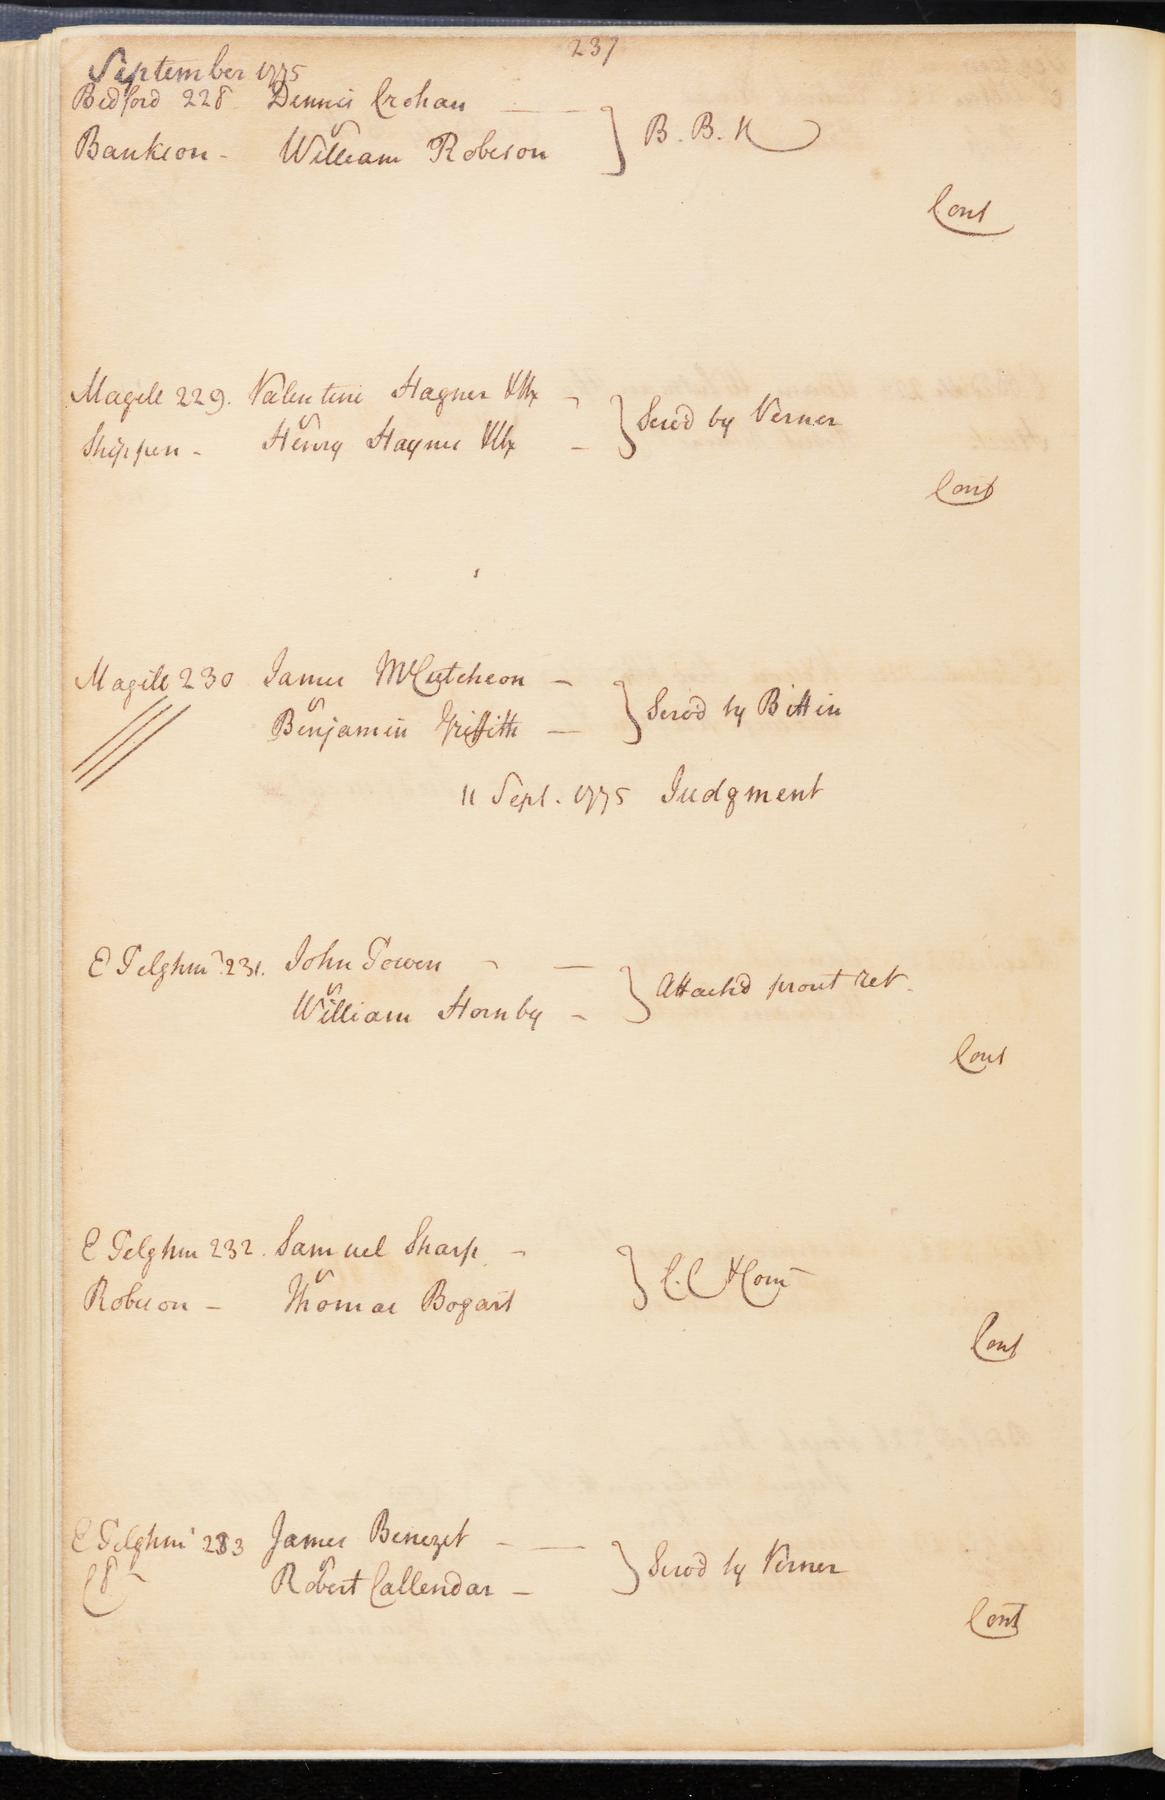 237
September 1775
Bedford 228 Dennis Crohan
v
Bankson - William Robeson } B. B. H
Cont
Magill 229. Valentine Hagner
v
Shippen - Henry Hayner } Serv'd by Verner
Cont
Magill 230 James McCutcheon -
v
Benjamin Griffith - } Serv'd by Bittin
11 Sept. 1775 Judgment
E Telghm 231. John Towen -
v
William Hornby - } Attach'd prout Ret.
Cont
E Telghm 232. Samuel Sharp -
v
Robeson - Thomas Bogart } C. C
Cont
E Telghm 233 James Benezet -
v
Robert Callendar - } Servd by Verner
Cont